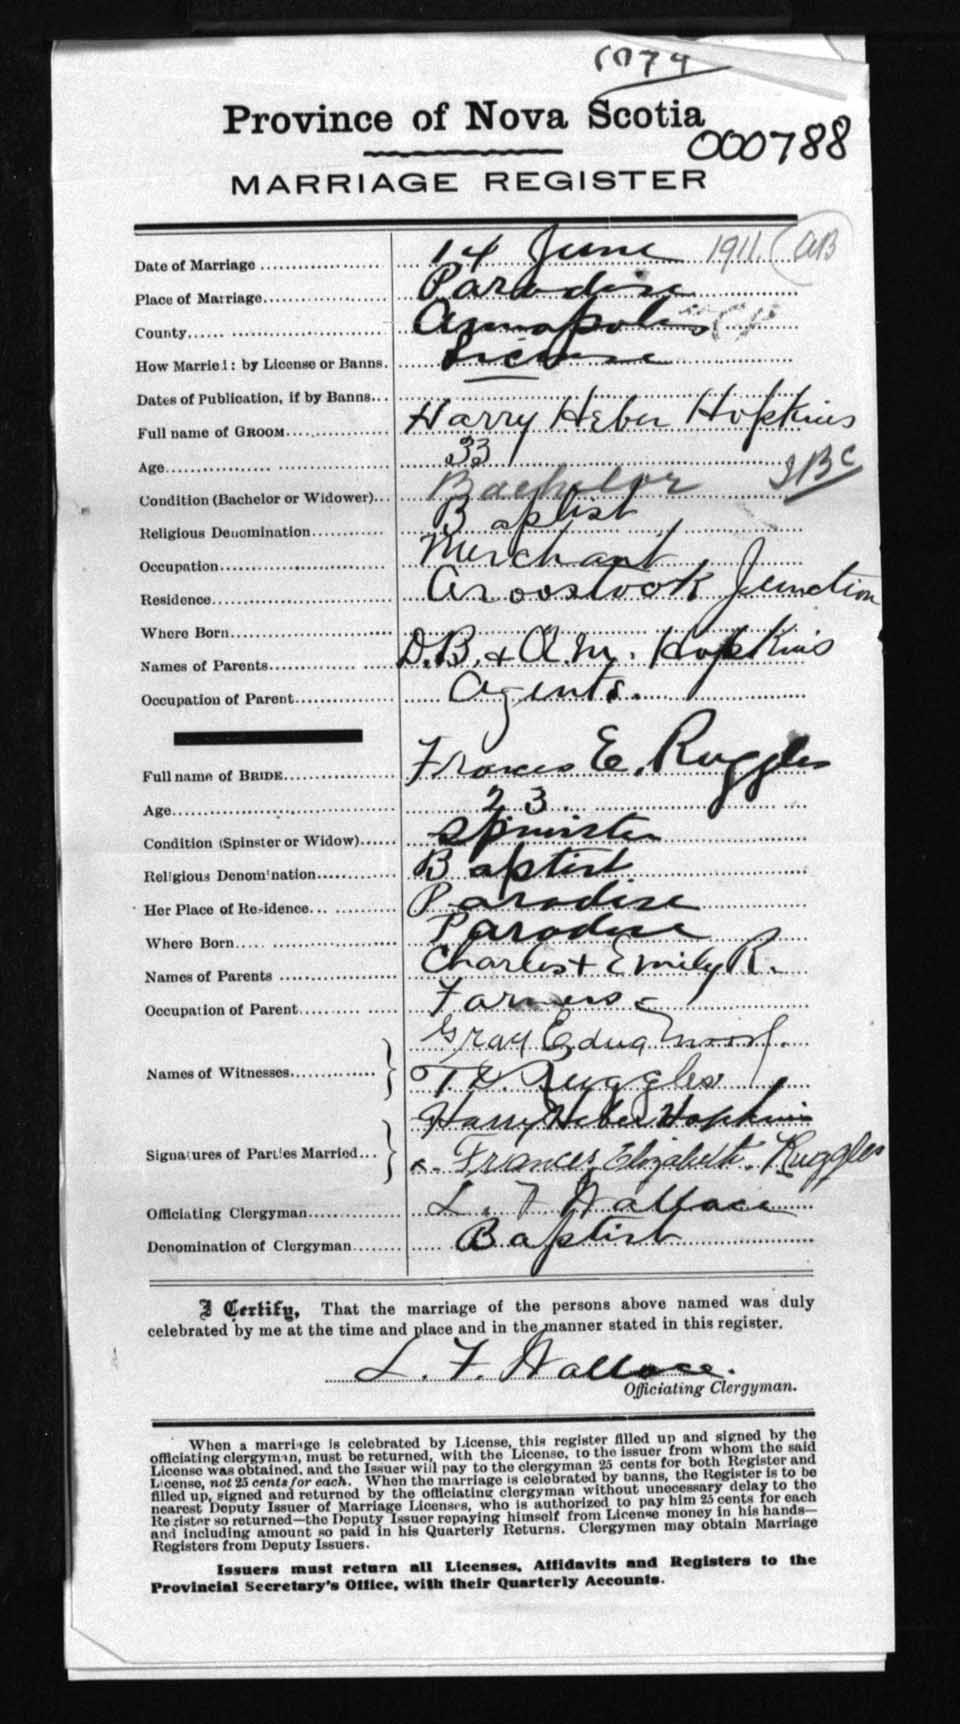 1074
Province of Nova Scotia
000788
MARRIAGE REGISTER
Date of Marriage 14 June 1911. AB
Place of Marriage Paradise
County Annapolis
How Married: by License or Banns. License
Dates of Publication, if by Banns
Full name of GROOM Harry Heber Hopkins
Age 33
Condition (Bachelor or Widower) Bachelor
Religious Denomination Baptist
Occupation Merchant
Residence Aroostook Junction
Where Born
Names of Parents D.B. & A.M. Hopkins
Occupation of Parent Agents.
Full name of BRIDE Frances E. Ruggles
Age 23.
Condition (Spinster or Widow) Spinster
Religious Denomination Baptist
Her Place of Residence Paradise
Where Born Paradise
Names of Parents Charles & Emily R.
Occupation of Parent Farmers
Names of Witnesses
Ruggles
Signatures of Parties Married Harry Heber Hopkins
Frances Elizabeth Ruggles
Officiating Clergyman L. F. Wallace
Denomination of Clergyman Baptist
I Certify, That the marriage of the persons above named was duly
celebrated by me at the time and place and in the manner stated in this register.
L. F. Wallace.
Officiating Clergyman.
When a marriage is celebrated by License, this register filled up and signed by the
officiating clergyman, must be returned, with the License, to the issuer from whom the said
License was obtained, and the Issuer will pay to the clergyman 25 cents for both Register and
License, not 25 cents for each. When the marriage is celebrated by banns, the Register is to be
filled up, signed and returned by the officiating clergyman without unecessary delay to the
nearest Deputy Issuer of Marriage Licenses, who is authorized to pay him 25 cents for each
Register so returned—the Deputy Issuer repaying himself from License money in his hands—
and including amount so paid in his Quarterly Returns. Clergymen may obtain Marriage
Registers from Deputy Issuers.
Issuers must return all Licenses, Affidavits and Registers to the
Provincial Secretary's Office, with their Quarterly Accounts.